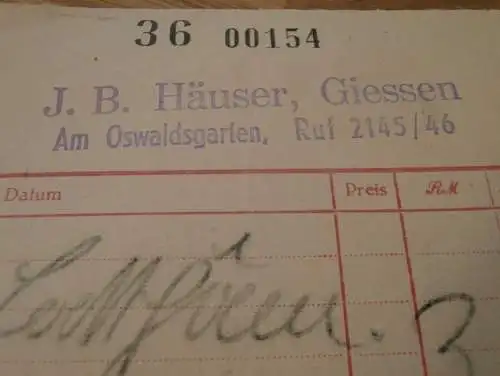 36 00154
J. B. Häuser, Giessen
Am Oswaldsgarten, Ruf 2145/46
Datum Preis RM
3